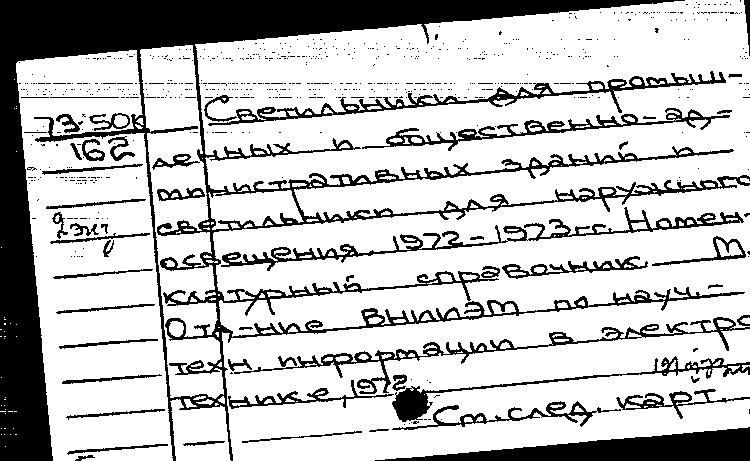 73-50к
162
2 экг.
Светильники для промыш-
ленных и общественно-ад-
министративных зданий и
светильники для наружного
освещения. 1972-1973 гг. Номен-
клатурный справочник. М.
Отд-ние ВНИИЭМ по науч.-
техн. информации в электро
технике, 1972
См. след. карт.